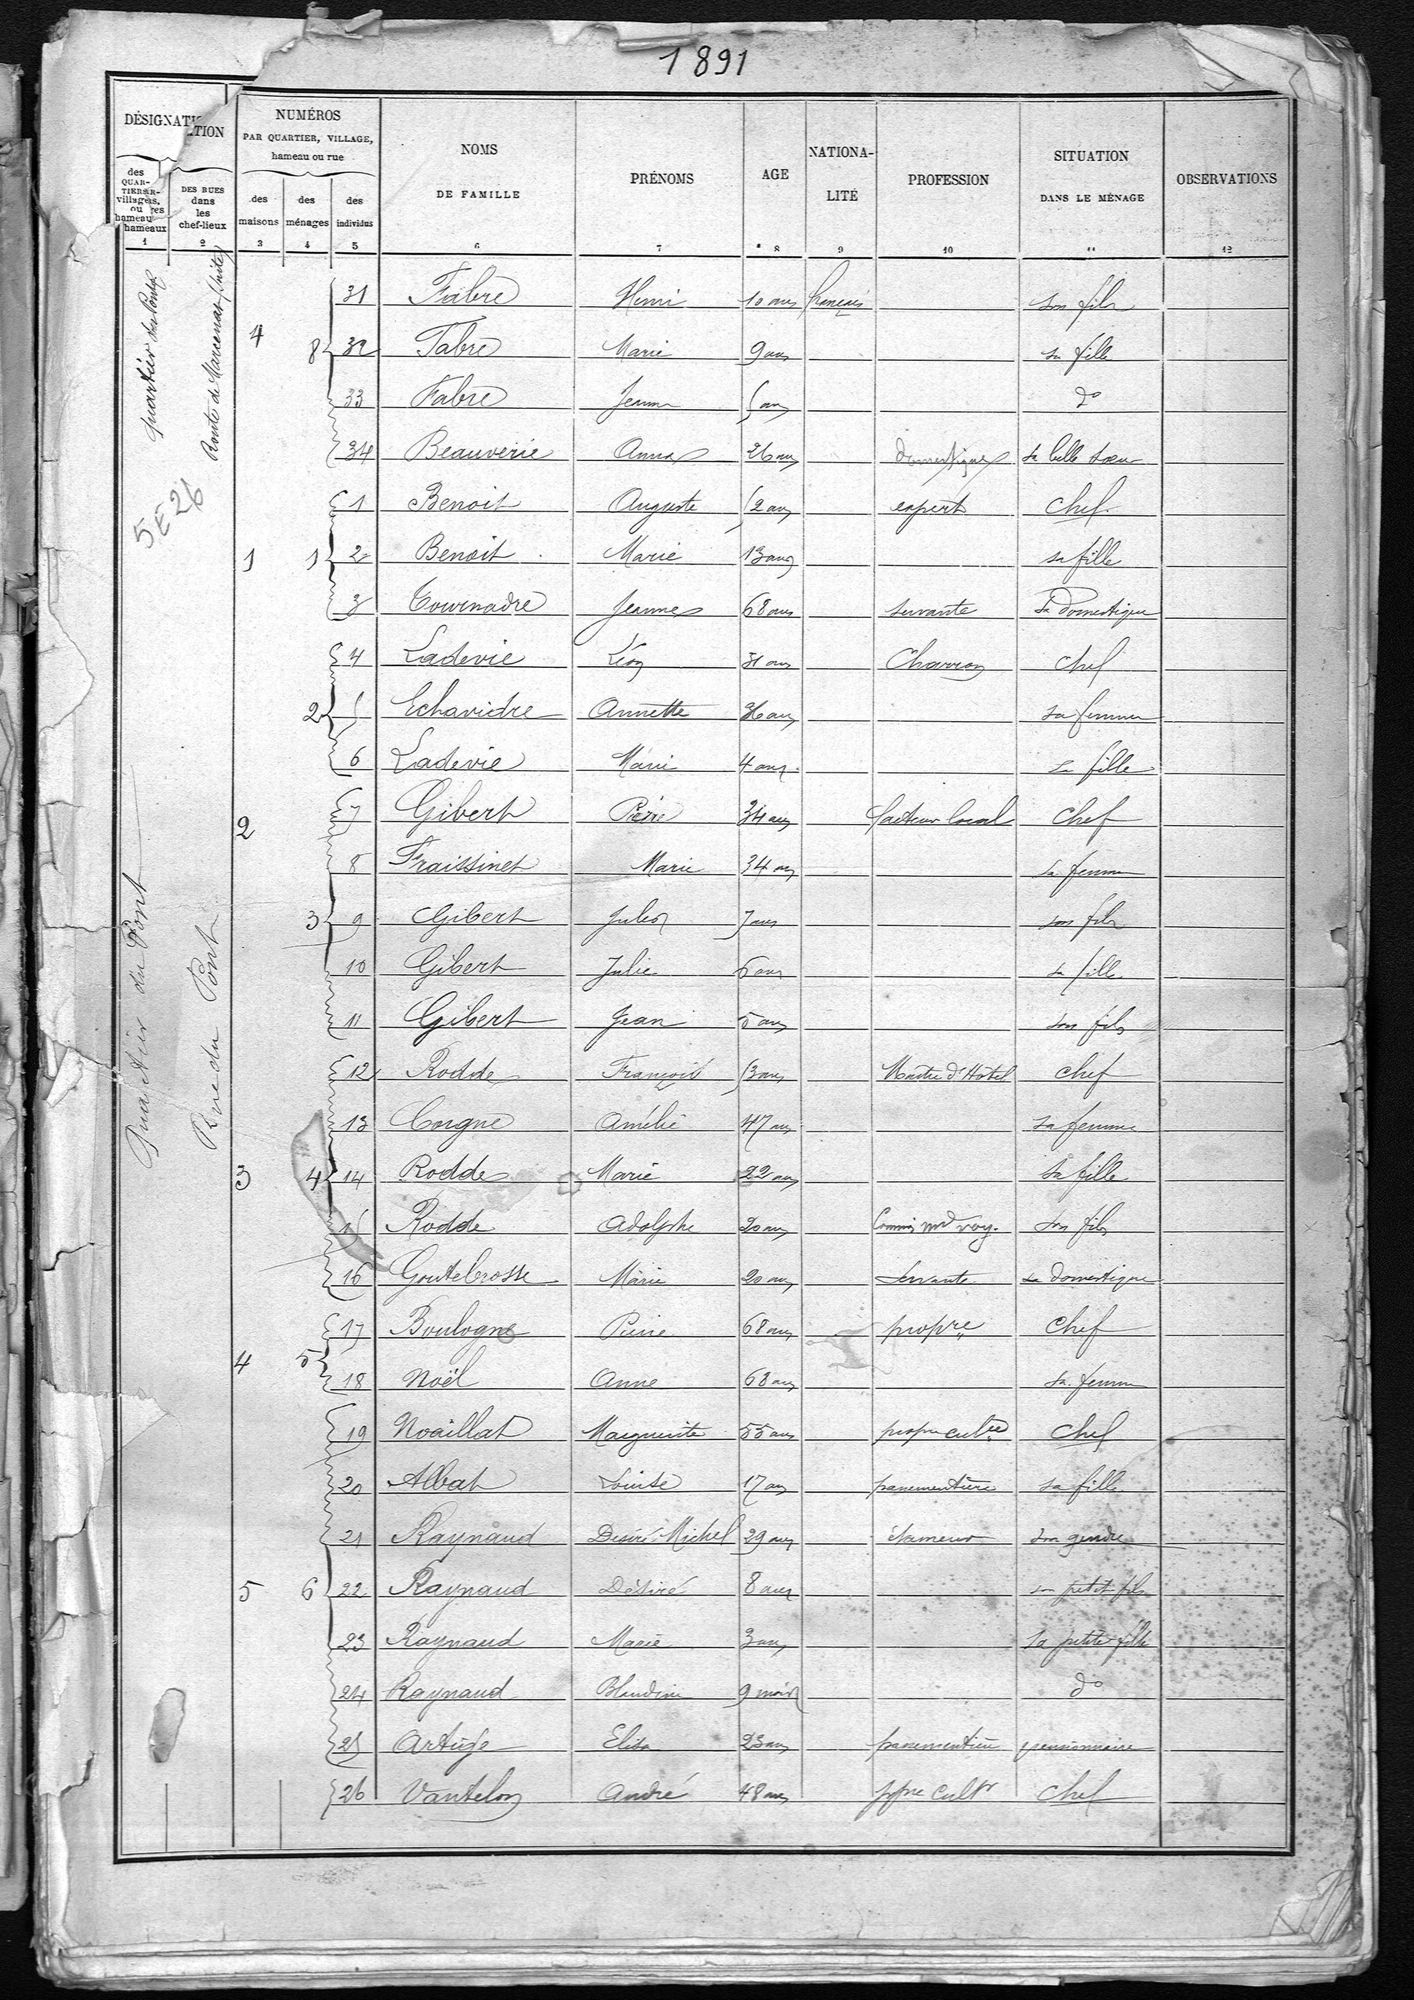 1891
DÉSIGNATION
NUMÉROS
PAR QUARTIER, VILLAGE,
hameau ou rue
NOMS
DE FAMILLE
PRÉNOMS
AGE
NATIONA-
LITÉ
PROFESSION
SITUATION
DANS LE MÉNAGE
OBSERVATIONS
des
QUAR-
TIERS
villages,
ou
hameaux
DES RUES
dans
les
chef-lieux
des
maisons
des
ménages
des
individus
1 2 3 4 5 6 7 8 9 10 11 12
Route de Marcenat (suite)
5E26
Quartier du Pont
Rue du Pont
31 Fabre Henri 10 ans français son fils
4 8 32 Fabre Marie 9 ans sa fille
33 Fabre Jeanne 5 ans do
34 Beauverie Anna 26 ans domestique sa belle sœur
1 Benoit Auguste 52 ans expert chef
1 1 2 Benoit Marie 13 ans sa fille
3 Tournadre Jeanne 68 ans servante sa Domestique
4 Ladevie Léon 31 ans Charron chef
2 5 Echavidre Annette 36 ans sa femme
6 Ladevie Marie 4 ans sa fille
2 7 Gibert Pierre 34 ans facteur local Chef
8 Fraissinet Marie 34 ans sa femme
3 9 Gibert Jules 7 ans son fils
10 Gibert Julie 6 ans sa fille
11 Gibert Jean 5 ans son fils
12 Rodde François 53 ans Maitre d'Hotel chef
13 Corgne Amélie 47 ans sa femme
3 4 14 Rodde Marie 22 ans sa fille
15 Rodde Adolphe 20 ans Commis md voy. son fils
16 Goutebrosse Marie 20 ans servante sa domestique
17 Boulogne Pierre 68 ans propre Chef
4 5 18 Noël Anne 63 ans sa femme
19 Noaillat Marguerite 55 ans chef
20 Albat Louise 17 ans passementière sa fille
21 Raynaud Desiré Michel 29 ans étameur son gendre
5 6 22 Raynaud Désiré 8 ans son petit fils
23 Raynaud Marie 3 ans sa petite fille
24 Raynaud Blandine 9 mois do
25 Artige Elisa 23 ans passementière pensionnaire
26 Vantelon André 48 ans ppre cultr chef